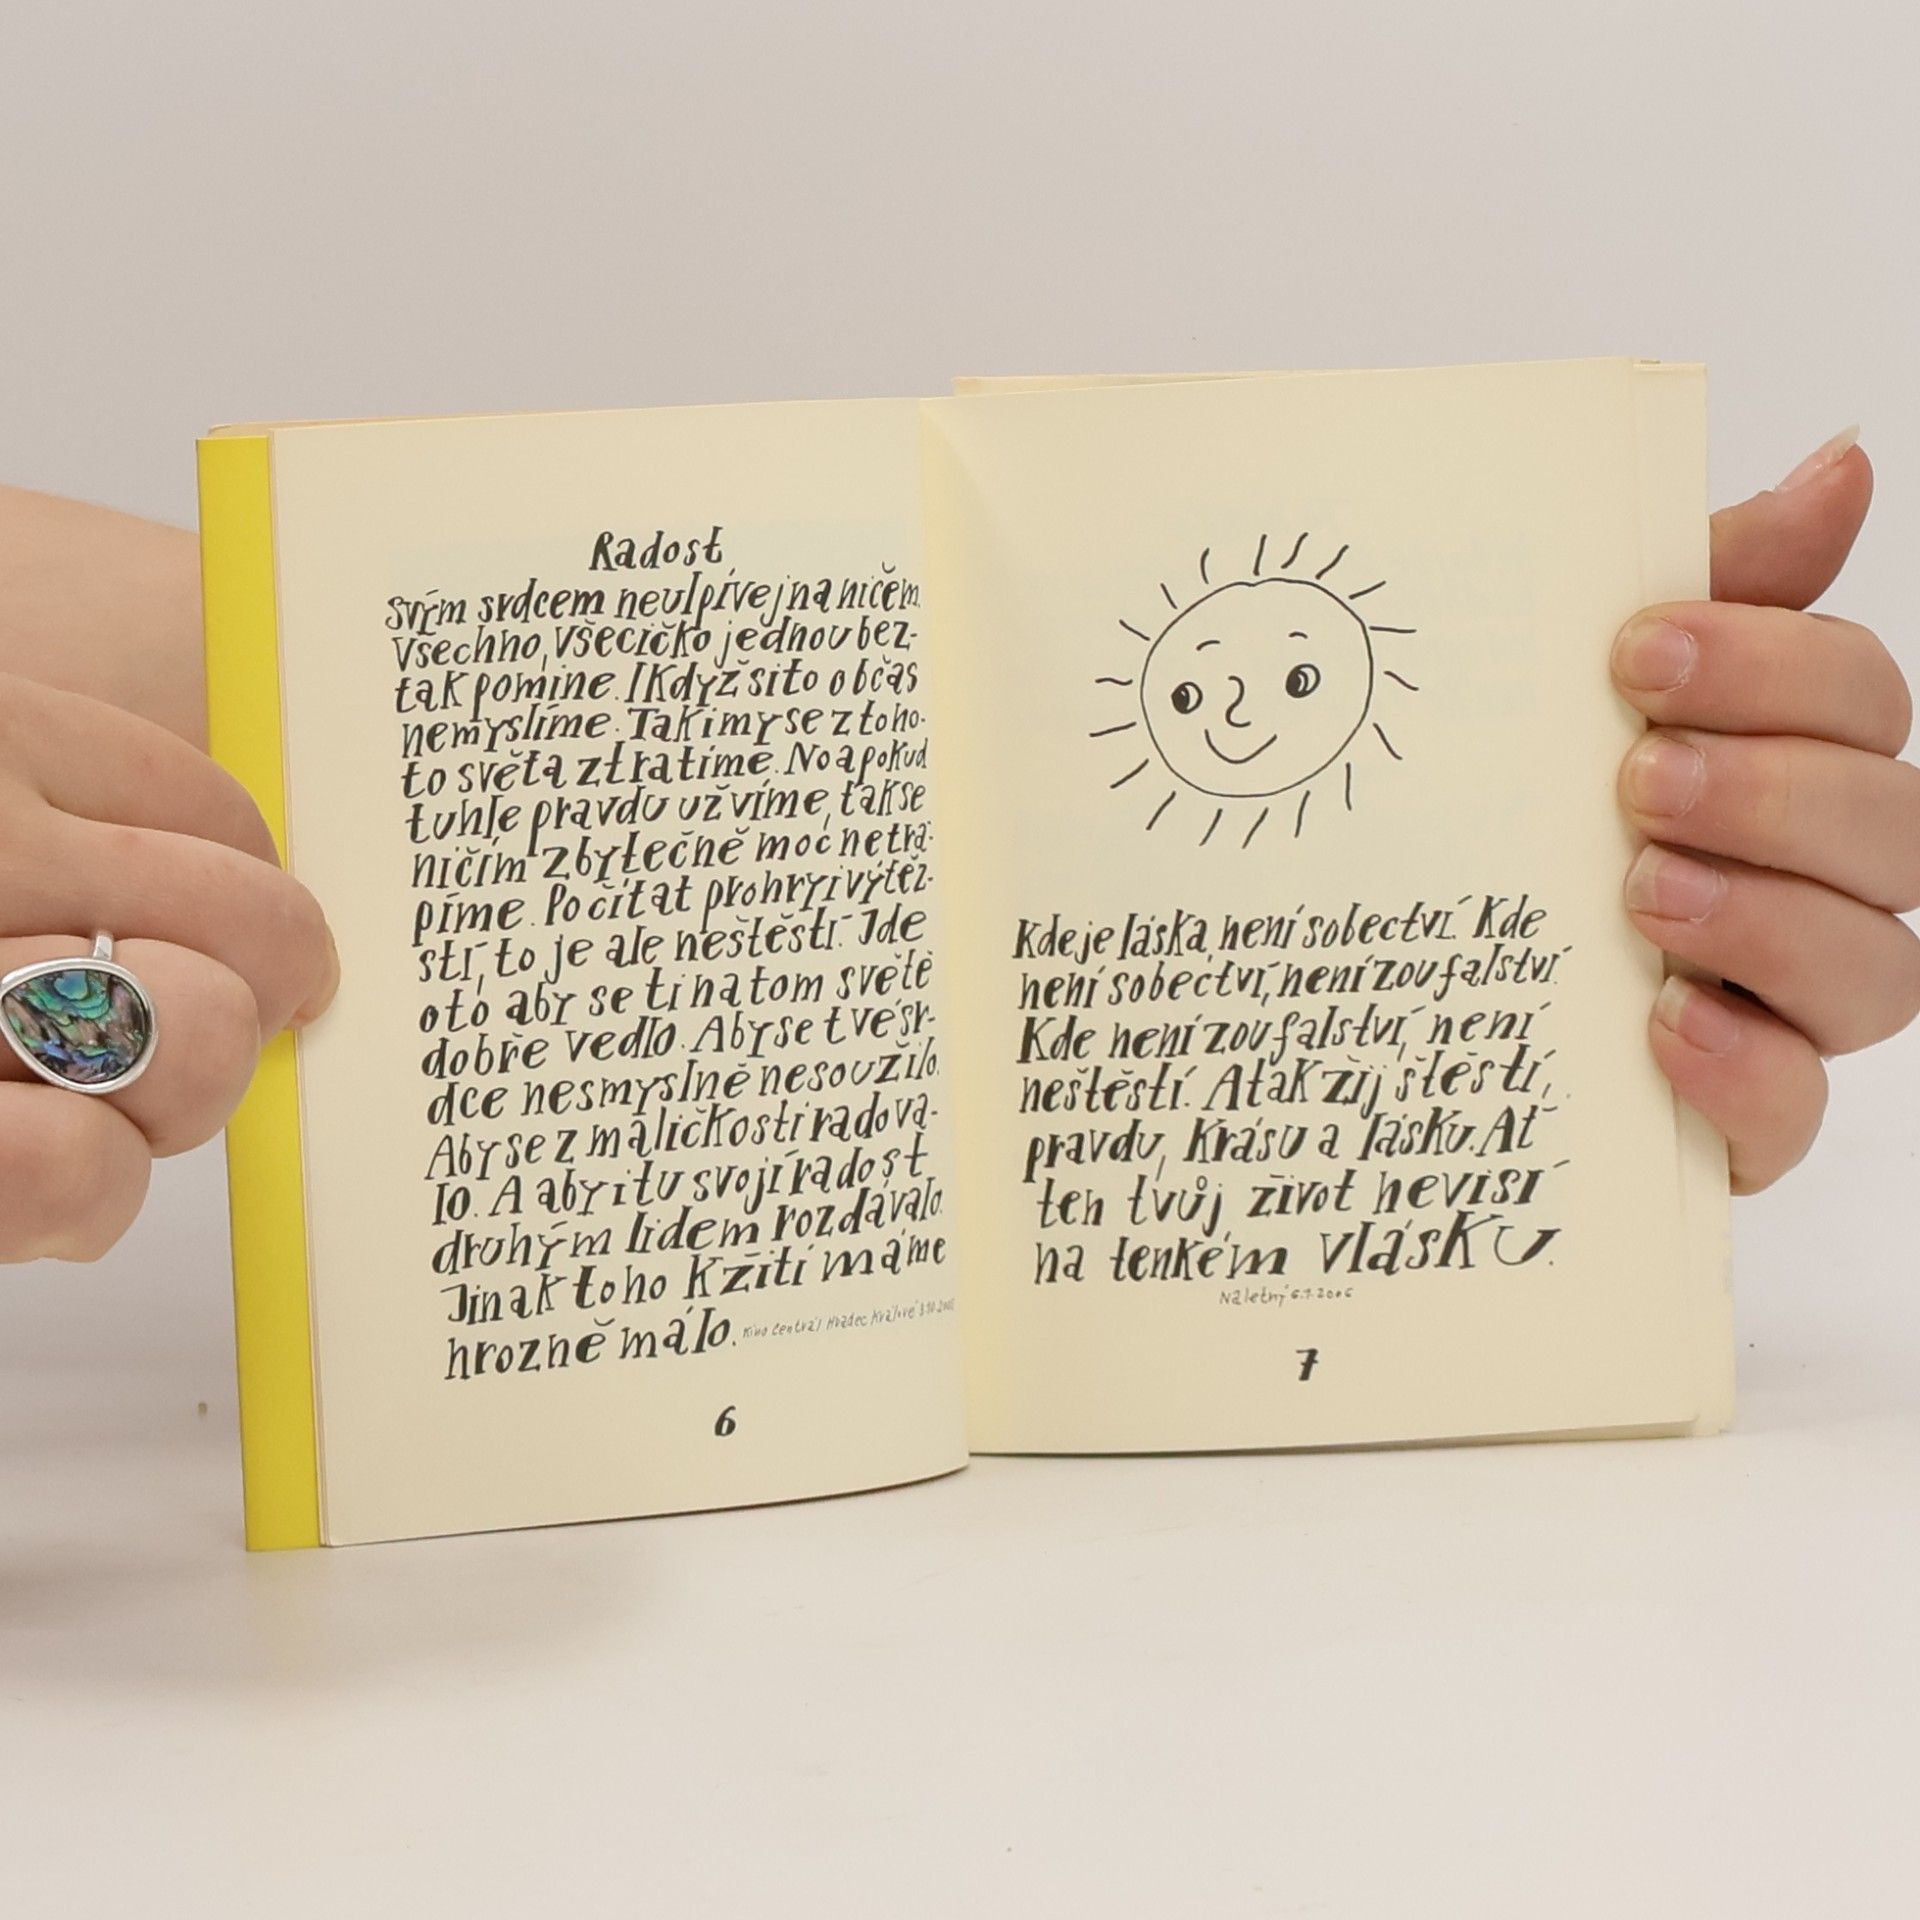 Radost
Svým srdcem neulpívej na ničem.
Všechno, všecičko jednou bez-
tak pomine. I když si to občas
nemyslíme. Tak i my se z toho-
to světa ztratíme. No a pokud
tuhle pravdu už víme, tak se
ničím zbytečně moc netrá-
píme. Počítat prohry i vítěz-
ství, to je ale neštěstí. Jde
o to aby se ti na tom světě
dobře vedlo. Aby se tvé sr-
dce nesmyslně nesoužilo.
Aby se z maličkosti radova-
lo. A aby i tu svojí radost
druhým lidem rozdávalo.
Jinak toho k žití máme
hrozně málo. Kino Centrál Hradec Králové
6
Kde je láska, není sobectví. Kde
není sobectví, není zoufalství.
Kde není zoufalství, není
neštěstí. Ať tak žij štěstí,
pravdu, krásu a lásku. Ať
ten tvůj život nevisí
na tenkém vlásku.
Na letný
7